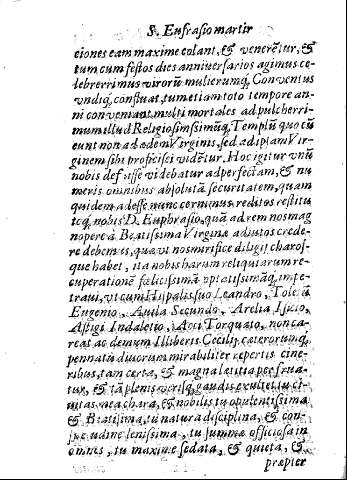 S. Eufrasio martir
ciones eam maxime colant, & venerētur, &
tum cum festos dies anniuersarios agimus ce-
lebrerrimus virorū mulierumq; Conuentus
vndiq; confluat, tum etiam toto tempore an-
ni conueniant multi mortales ad pulcherri-
mum ellud Religiosissimūq; Templū quo cū
eunt non ad ædem Virginis, sed ad ipsam Vir-
ginem sibi proficisci vidētur. Hoc igitur vnū
nobis defuisse videbatur ad perfectam, & nu
meris omnibus absolutā securitatem, quam
quidem adesse nunc cernimus reditos restitu
toq; nobis D. Euphrasio, quā ad rem nos mag
nopere à Beatissima Virgine adiutos crede-
re debemus, quæ vt nos mirifice diligit charos-
que habet, ita nobis harum reliquiarum re-
cuperationē fœlicissimā optatissimāq; impe-
traui, vt cum Hispalis suo Leandro, Toletū
Eugenio, Auila Secundo, Arelia Isicio,
Astigi Indaletio, Acci Torquato, non ca-
reas ac demum Illiberis Cecilij, cæterorumq;
pennatū diuorum mirabiliter repertis cine-
ribus, tam certa, & magna lætitia perfrua-
tur, & tā plenis verisq; gaudijs exultet, tu ci-
uitas mea chara, & nobilis, tu opulentissima
& Beatissima, tu natura disciplina, & con-
suetudine lenissima, tu summæ officiosa in
omnes, tu maxime sedata, & quieta, &
præpter